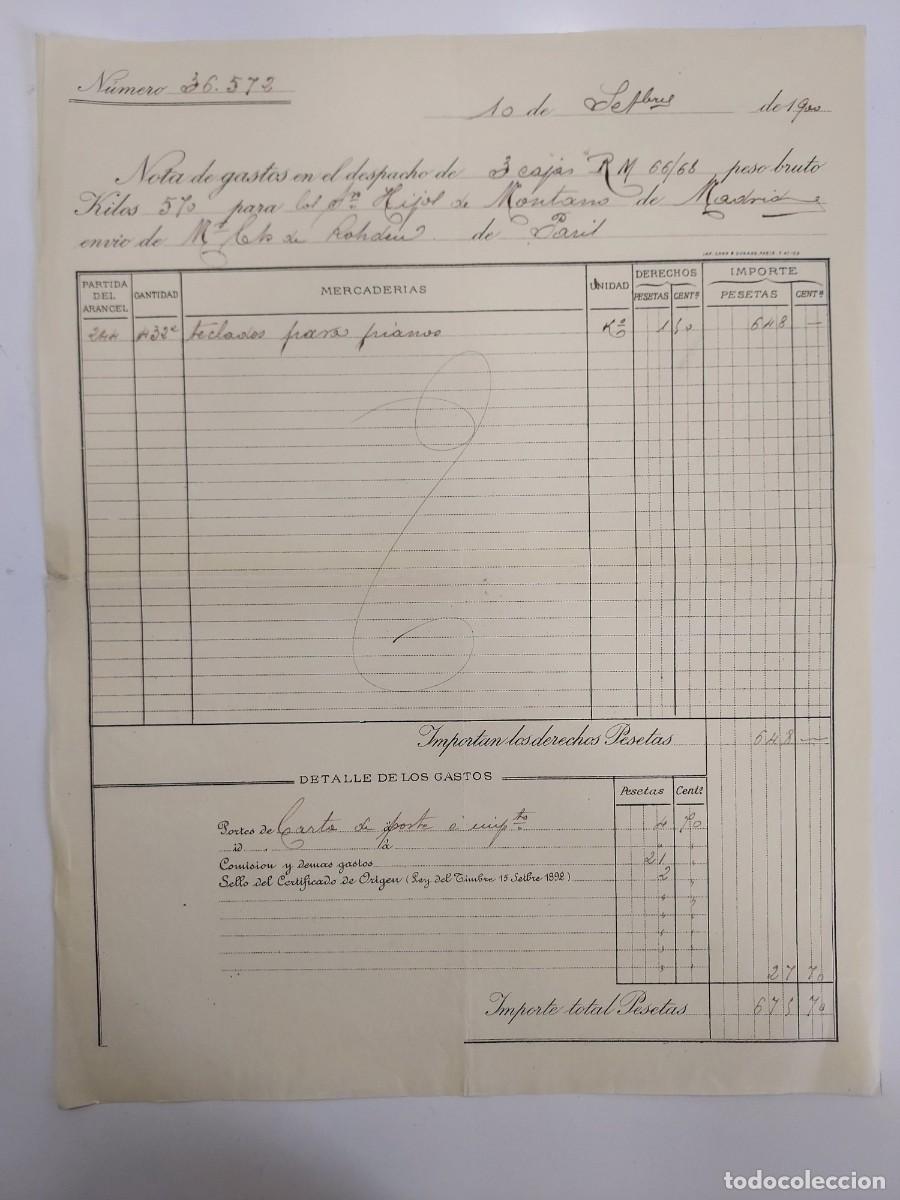 Número 36.572
10 de Setbre de 1900
Nota de gastos en el despacho de 3 cajas RM 66/68 peso bruto
Kilos 570 para los Sres Hijos de Montano de Madrid
envio de Mr Ch de Rohden de Paris
PARTIDA DEL ARANCEL CANTIDAD MERCADERIAS UNIDAD DERECHOS PESETAS CENTS IMPORTE PESETAS CENTS
244 432 teclados para pianos Ko 1 50 648 —
Importan los derechos Pesetas 648 —
DETALLE DE LOS GASTOS
Pesetas Cents
Portes de Carta de porte é impto 4 70
id á
Comision y demas gastos 21
Sello del Certificado de Origen (Ley del Timbre 15 Setbre 1892) 2
27 70
Importe total Pesetas 675 70
todocoleccion